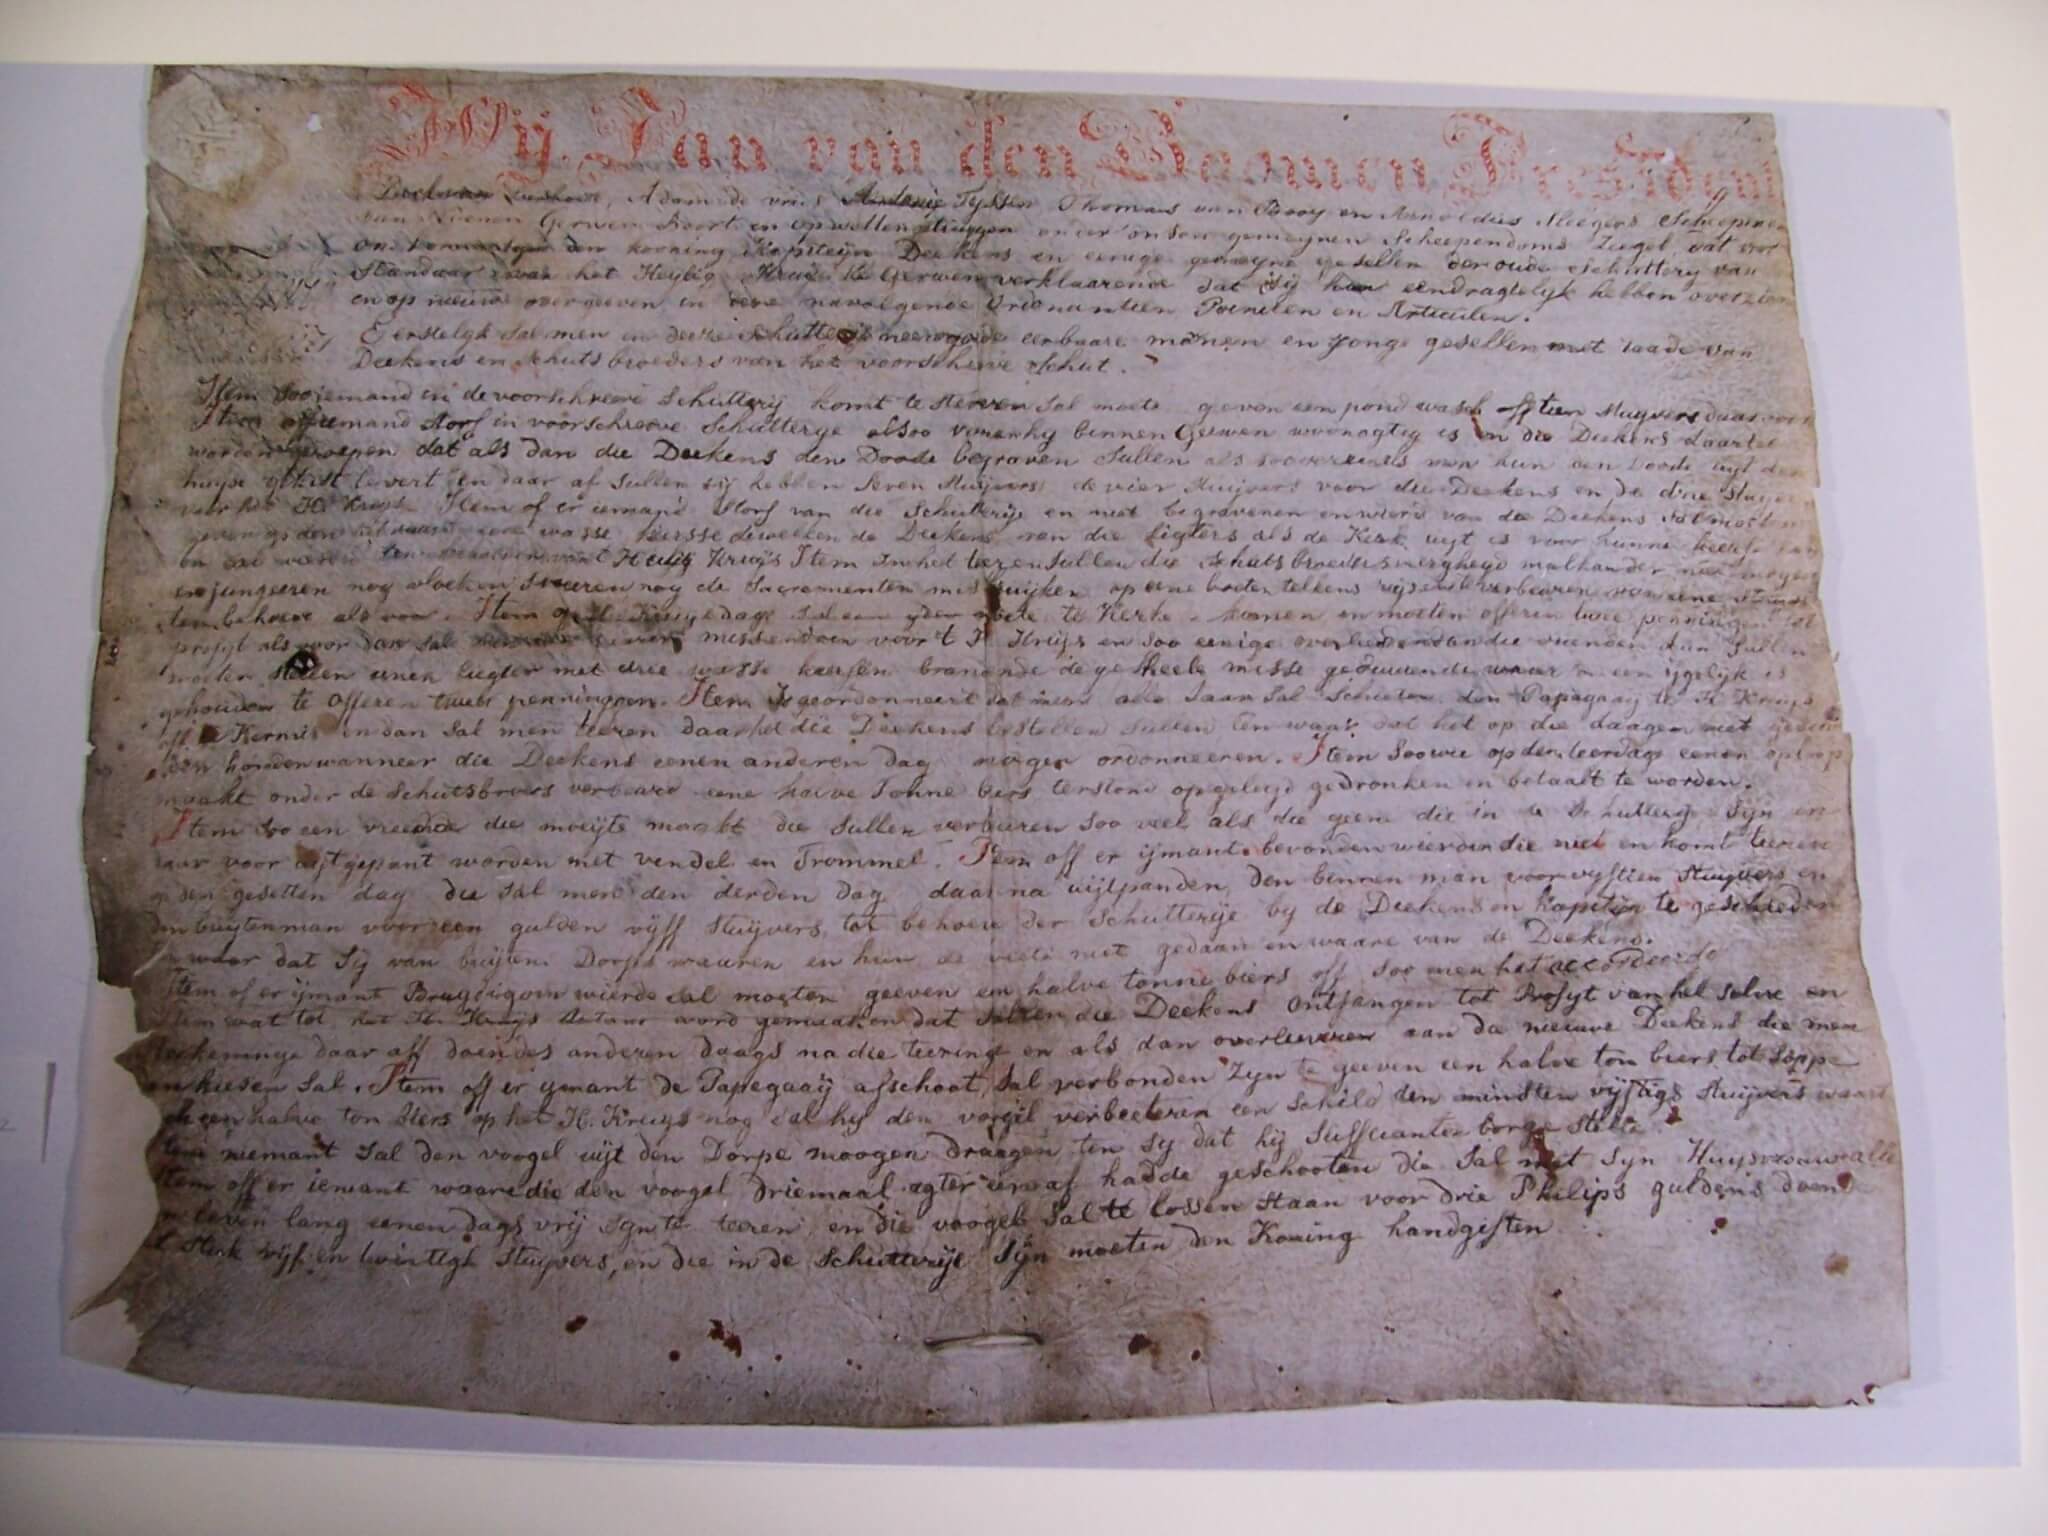 Wij Jan van den Boomen President
Adam de vries Antonie Tyssen, Thomas van Rooy en Arnoldus Sleegers Scheepenen
van Nuenen Gerwen en opwetten tuijgen onder onsen gemeynen Scheependoms Zeegel, dat voor
ons den kooning Kapiteijn Deekens en eenige gemeyne gesellen der oude Schuttery van
Standaar van het Heylig Kruijs te Gerwen verklaarende dat sij hun eendragtelyk hebben overzien
en op nieuw overgeeven in deese navolgende Ordonnantien Poincten en Articulen.
Eerstelyk sal men in dese Schutterij eerbaare mannen en jonge gesellen met raade van
Deekens en Schutsbroeders van het voorschreve Schut.
Item Soo iemand in de voorschreeve Schutterij komt te sterven sal moete geeven een pond wasch off tien Stuyvers daar voor
Item off iemand Storf in voorschreeve Schutterye alsoo vaner hy binnen Gerwen woonagtig is en die Deekens daartoe
worden geroepen dat als dan die Deekens den Doode begraven Sullen als soo vereende men hun den Doode uyt den
huyse levert en daar af Sullen sij hebben Seven Stuijvers de vier Stuijvers voor die Deekens en de drie Stuyvers
voor het H. Kruys. Item of er iemand Storf van die Schutterije en niet begraven en wierd van de Deekens sal moeten
wasse kersse Deweelken de Deekens van die ligters als de Kerk uyt is voor hunne
ten behoeve van t Heilig Kruijs Item In het teeren Sullen die Schutsbroeders malkander niet mogen
en jungeeren nog vloeken Sweeren nog de Sacramenten misbruijken op eene boeten tellens verbeuren van eene
ten behoeve als voor. Item op H. Kruysdag sal een yder moete te Kerke komen en moeten offeren twee penningen tot
profyt als voor dan sal men missen doen voor t H Kruijs en soo eenige overledenen dan die vrienden dan Sullen
moeten stellen eenen Ligter met drie wasse keersen branende de geheele misse geduurende waar een ijgelijk is
gehouden te offeren twee penningen. Item Is geordonneert dat men alle Jaar Sal Schieten den Papagaaij te H. Kruys
off te Kermis en dan sal men teeren daar het die Deekens bestellen Sullen ten waar dat het op die daagen niet
konden wanneer die Deekens eenen anderen Dag mogen ordonneeren. Item Soo wie op den teerdag eenen oploop
maakt onder de Schutsbroers verbeurd eene halve Tonne biers terstond opgeleyd gedronken en betaalt te worden.
Item Soo een vreemde die moeijte maakt die Sullen verbeuren Soo veel als die geene die in de Schutterij Sijn en
daar voor uijtgepant worden met vendel en Trommel. Item off er ijmant bevonden wierden die niet en komt teeren
op den gesetten dag die sal men den derden dag daarna uijtpanden, den binnen man voor vyftien Stuijvers en
den buytenman voor een gulden vijff Stuijvers, tot behoeve der Schutterije by de Deekens en kapitijn te geschieden
waar dat Sij van buijten Dorps waaren en hun de weete niet gedaan en waare van de Deekens.
Item of er ijmant Bruydigom wierde Sal moeten geeven een halve tonne biers off soo men het accordeerde
Item wat tot het H. Kruijs Autaar word gemaaken dat Sullen die Deekens Ontfangen tot Profyt van het selve en
Reekeninge daar aff doen des anderen daags na die teering en als dan overleeveren aan de nieuwe Deekens die men
en kiesen Sal. Item off er ymant de Papegaaij afschoot, Sal verbonden Zyn te geeven een halve ton biers tot
een halve ton biers op het H. Kruys nog sal hy den vogel verbeeteren een Schild den minsten vijftigh Stuijvers waard
Item niemant Sal den voogel uijt den Dorpe moogen draagen, ten sy dat hij Suffisante borge Stelt.
Item off er iemant waare die den voogel driemaal agter een af hadde geschooten die Sal met Syn Huysvrouw alle
leeven lang eenen dags vrij Syn te teeren, en die voogel Sal te lossen Staan voor drie Philips guldens doende
t Stuk vijf en twintigh Stuyvers, en die in de Schutterije Sijn moeten den Koning handgiften